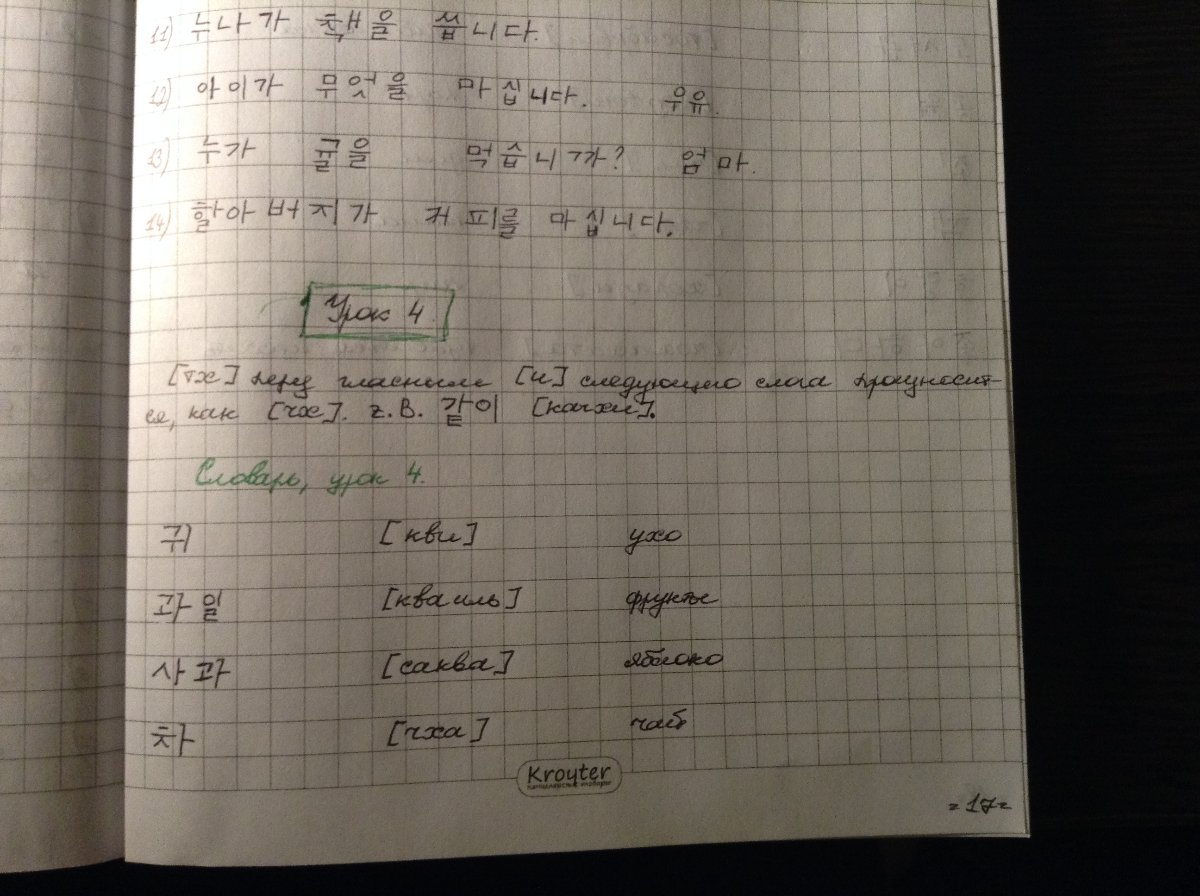 11) 누나가 책을 씁니다.
12) 아이가 무엇을 마십니다. 우유.
13) 누가 귤을 먹습니까? 엄마.
14) 할아버지가 커피를 마십니다.
Урок 4.
[тх] перед гласными [и] следующего слога произносит-
ся, как [чх]. z.B. 같이 [качхи].
Словарь, урок 4.
귀 [кви] ухо
과일 [кваиль] фрукты
사과 [саква] яблоко
차 [чха] чай
Kroyter
канцелярские товары
=17=